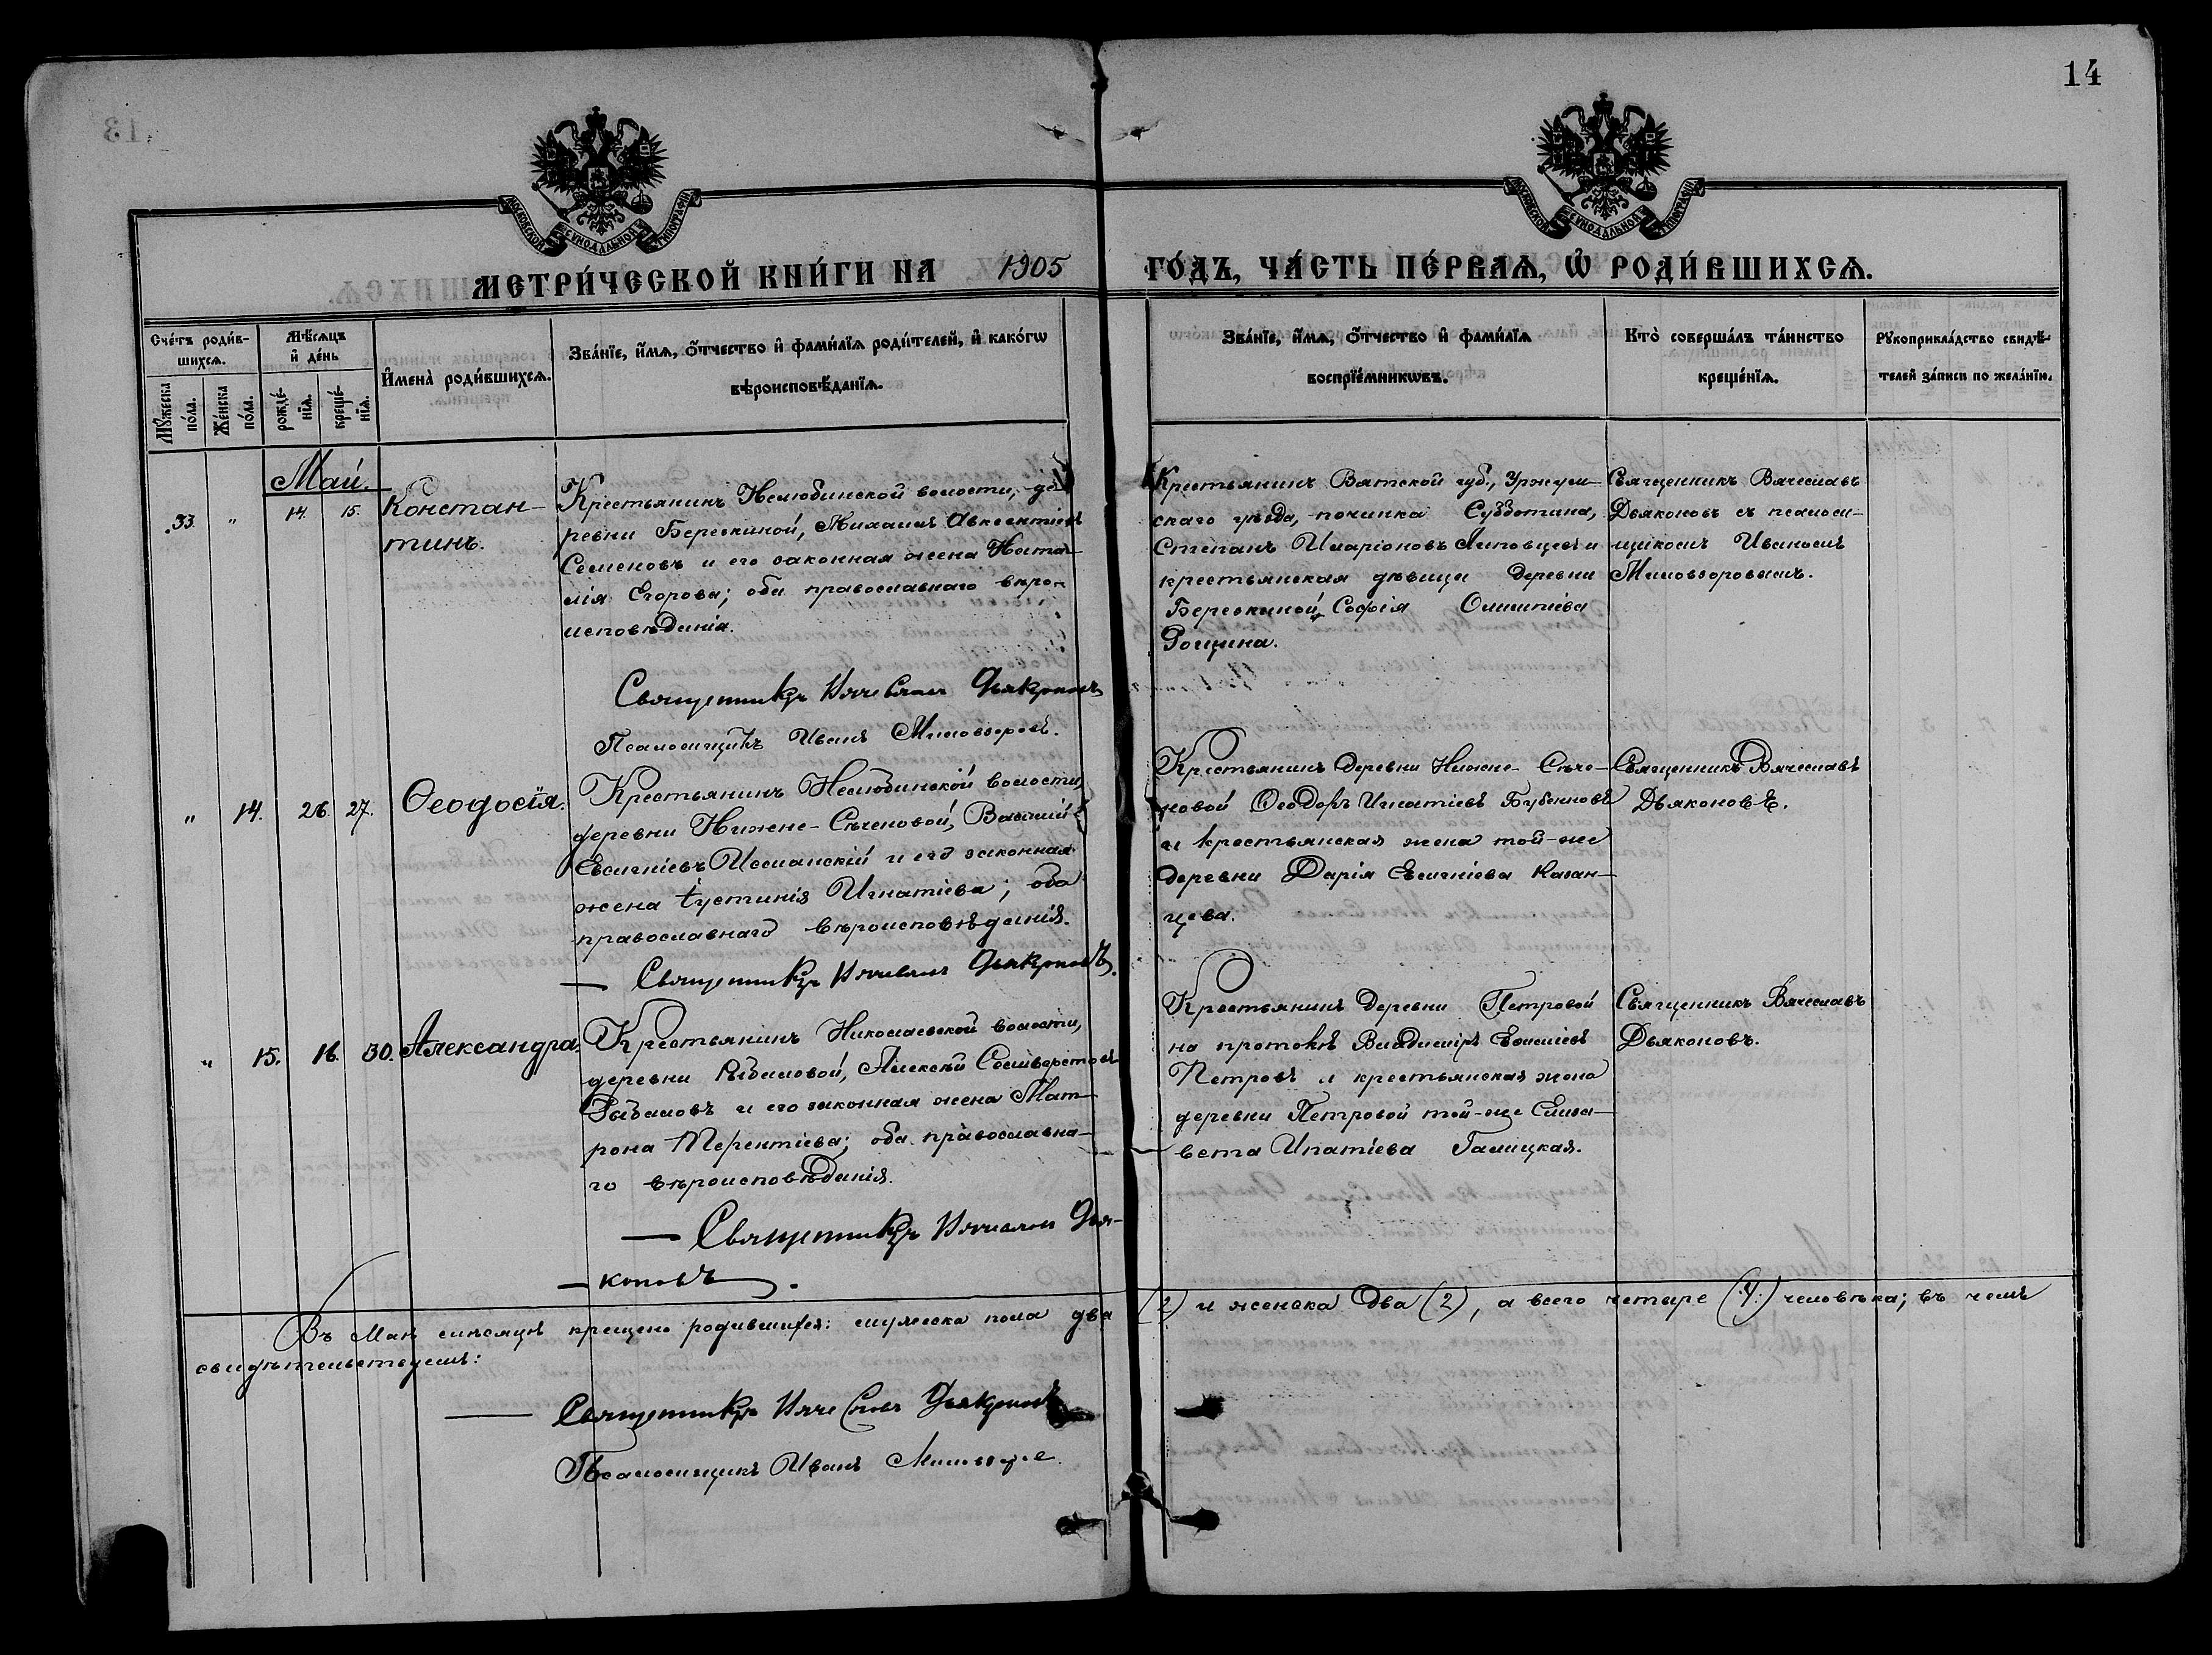 14
МОСКОВСКОЙ СѴНОДАЛЬНОЙ ТИПОГРАФІИ
МОСКОВСКОЙ СѴНОДАЛЬНОЙ ТИПОГРАФІИ
МЕТРИ́ЧЕСКОЙ КНИ́ГИ НА 1905
ГО́ДЪ, ЧА́СТЬ ПЕ́РВАѦ, Ѡ҆ РОДИ́ВШИХСѦ.
Сче́тъ роди́в-
шихсѧ.
Мꙋ́жеска по́ла.
Же́нска по́ла.
Мѣ́сѧцъ
и҆ де́нь
рожде́-
нїѧ.
креще́-
нїѧ.
И҆мена̀ роди́вшихсѧ.
Зва́нїе, и҆́мѧ, ѻ҆́тчество и҆ фами́лїѧ роди́телей, и҆ како́гѡ
вѣроисповѣ́данїѧ.
Зва́нїе, и҆́мѧ, ѻ҆́тчество и҆ фами́лїѧ
воспрїе́мникѡвъ.
Кто̀ соверша́лъ та́инство
креще́нїѧ.
Рꙋкоприкла́дство свидѣ́-
телей за́писи по жела́нїю.
Май.
33. " 14. 15. Констан-
тинъ.
Крестьянинъ Нелюбинской волости, де-
ревни Березкиной, Михаилъ Авксентіевъ
Семеновъ и его законная жена Ната-
лія Егорова; оба православнаго вѣро-
исповѣданія.
Священникъ Вячеславъ Дьяконовъ
Псаломщикъ Иванъ Миловзоровъ.
Крестьянинъ Вятской губ., Уржум-
скаго уѣзда, починка Субботина,
Степанъ Иларіоновъ и
крестьянская дѣвица деревни
Березкиной, Софія
Рощина.
Священникъ Вячеславъ
Дьяконовъ съ псалом-
щикомъ Иваномъ
Миловзоровымъ.
" 14. 26. 27. Ѳеодосія.
Крестьянинъ Нелюбинской волости,
деревни Нижне-Сѣченовой, Василій
Евсигніевъ и его законная
жена Іустинія Игнатіева; оба
православнаго вѣроисповѣданія.
Священникъ Вячеславъ Дьяконовъ.
Крестьянинъ деревни Нижне-Сѣче-
новой Ѳеодоръ Игнатіевъ Бубенновъ
и крестьянская жена той-же
деревни Дарія Евсигніева Казан-
цева.
Священникъ Вячеславъ
Дьяконовъ.
" 15. 16. 30. Александра.
Крестьянинъ Николаевской волости,
деревни Рыбаловой, Алексѣй Селиверстовъ
Рыбаловъ и его законная жена Мат-
рона Терентіева; оба православна-
го вѣроисповѣданія.
Священникъ Вячеславъ Дья-
коновъ.
Крестьянинъ деревни Петровой
на протокѣ Владиміръ
Петровъ и крестьянская жена
деревни Петровой той-же Елиза-
вета Ипатіева Галицкая.
Священникъ Вячеславъ
Дьяконовъ.
Въ Маѣ мѣсяцѣ крещено родившихся: мужеска пола два (2) и женска два (2), а всего четыре (4) человѣка; въ чемъ
свидѣтельствуемъ:
Священникъ Вячеславъ Дьяконовъ
Псаломщикъ Иванъ